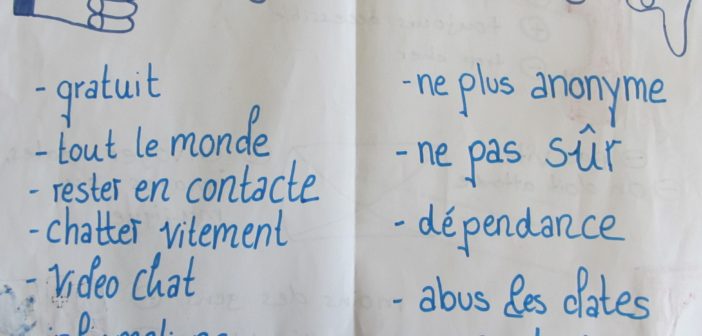 - gratuit
- tout le monde
- rester en contacte
- chatter vitement
- Video Chat
- ne plus anonyme
- ne pas sûr
- dépendance
- abus des dates